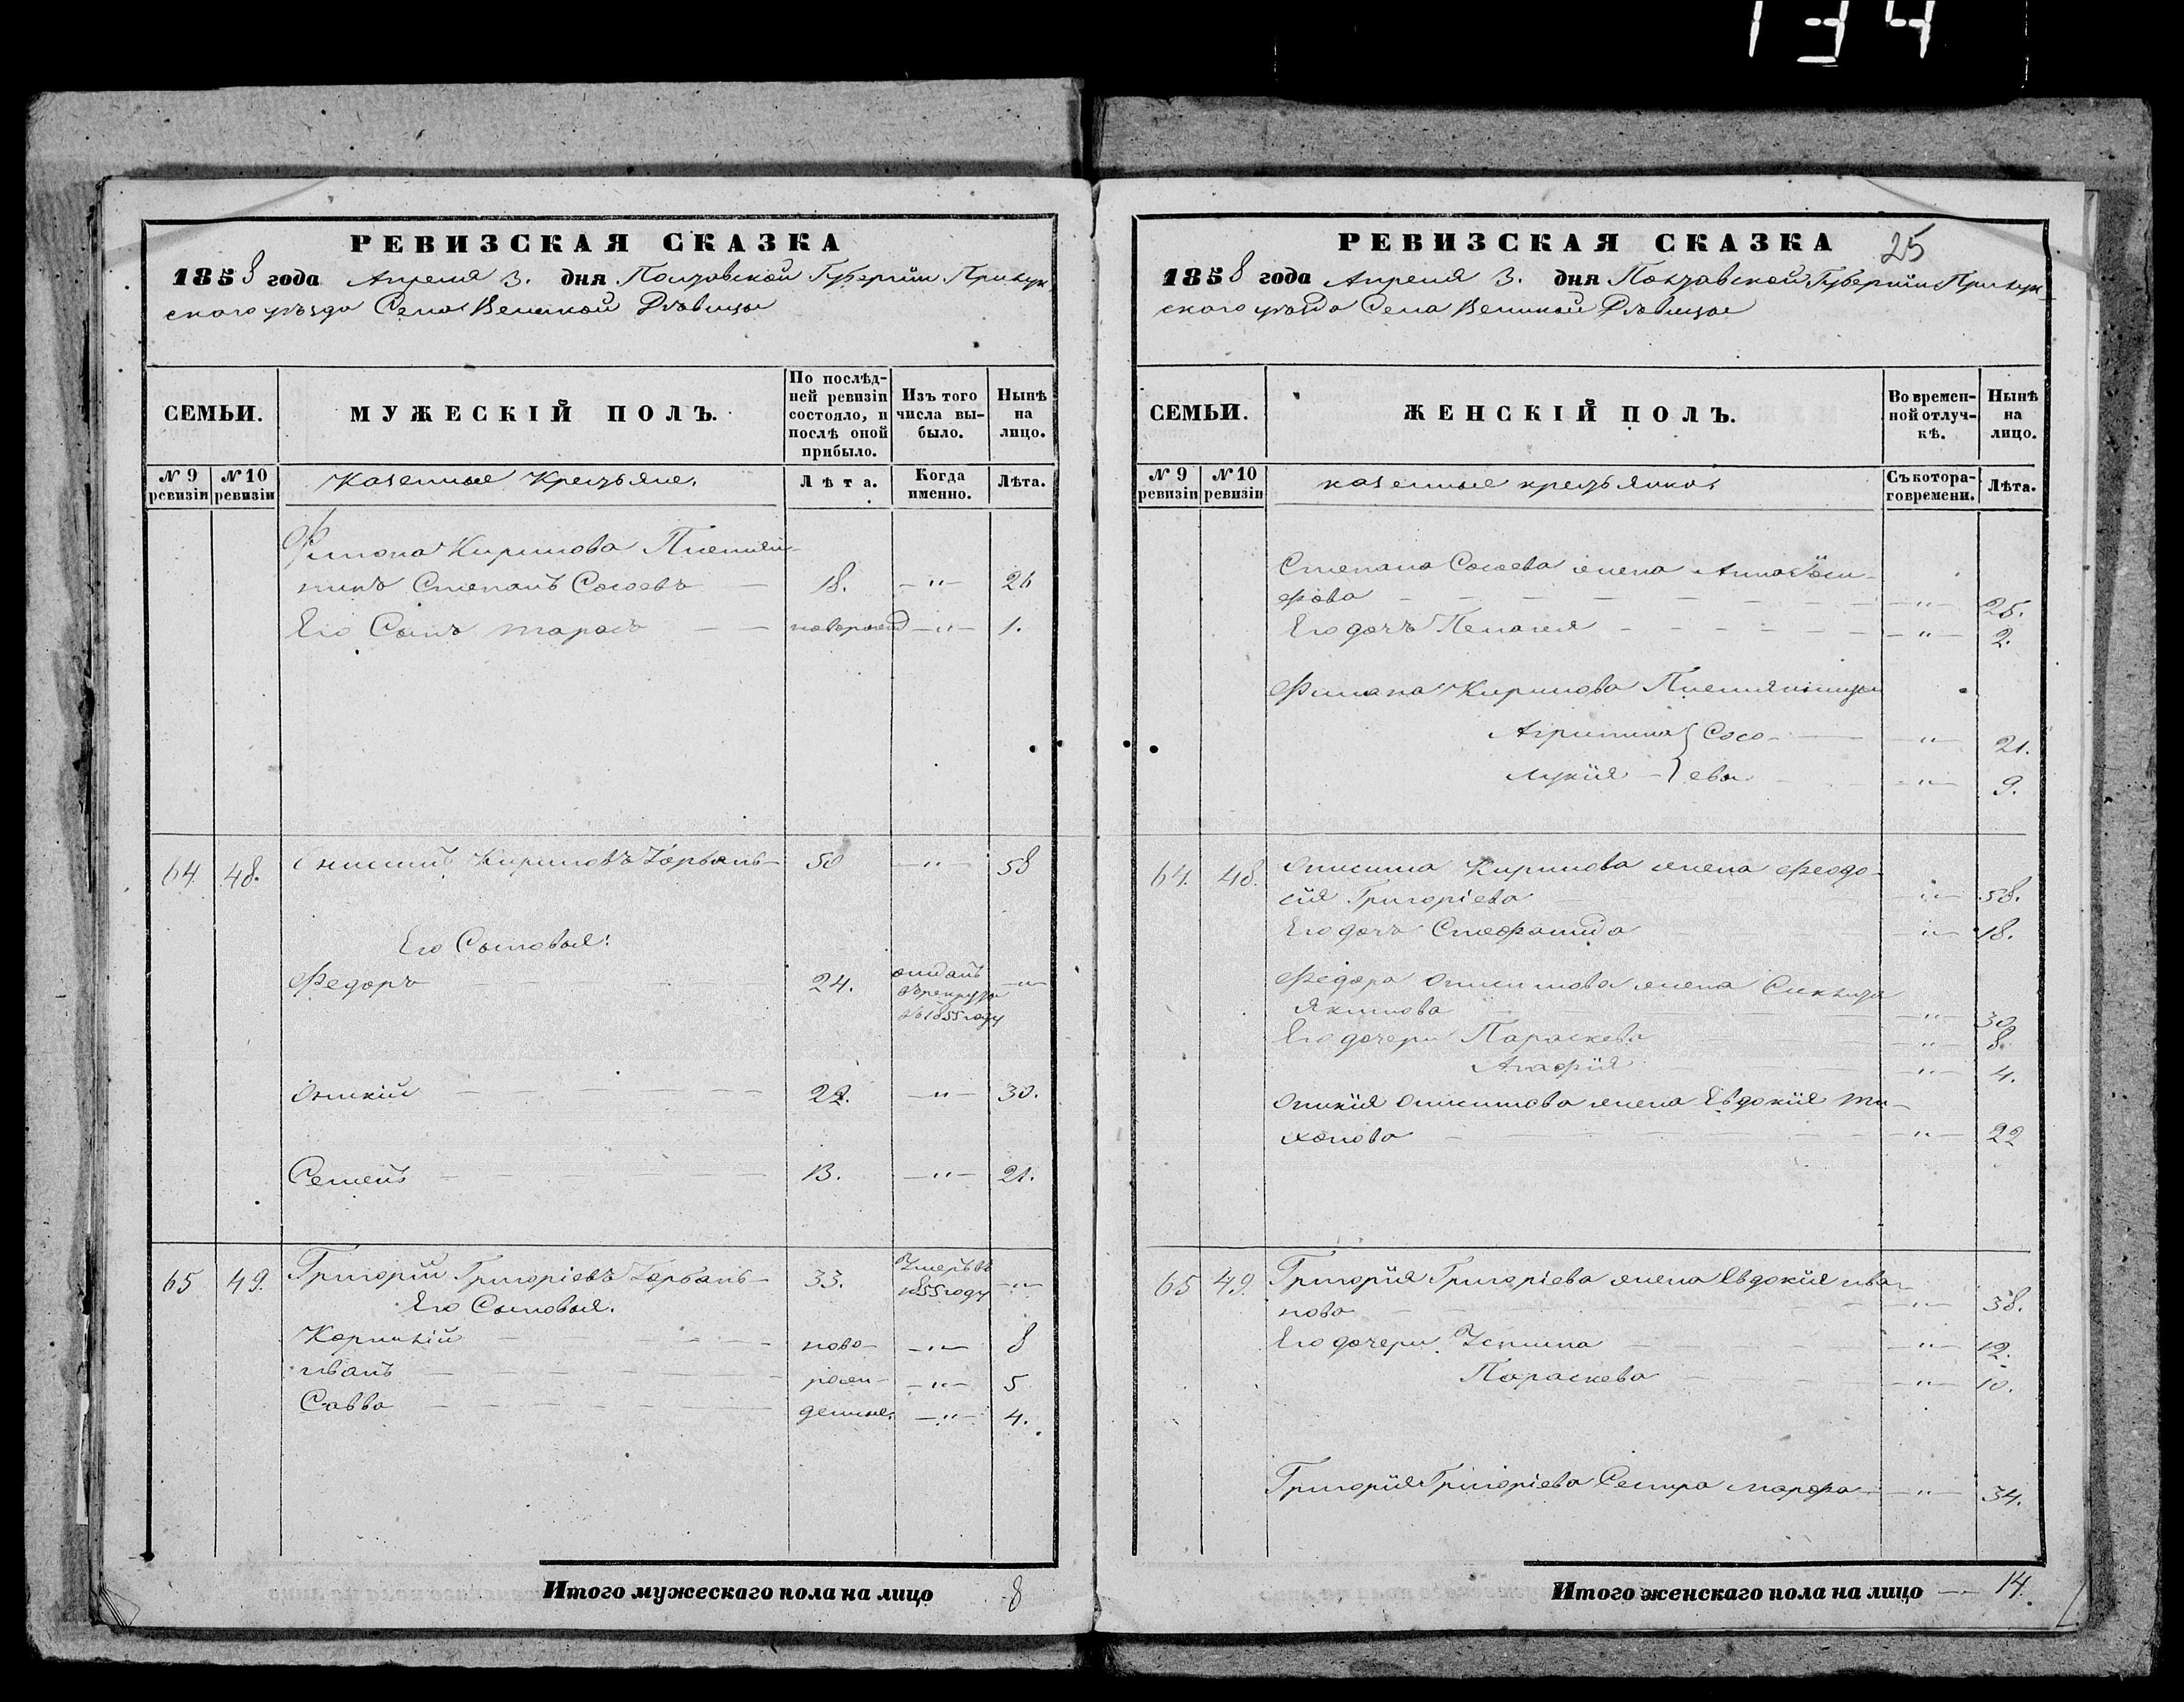 134
РЕВИЗСКАЯ СКАЗКА
1858 года Апреля 3. дня Полтавской Губернии Прилук
ского уѣзда Села Великой Дѣвицы
СЕМЬИ.
МУЖЕСКІЙ ПОЛЪ.
По послѣд-
ней ревизіи
состояло, и
послѣ оной
прибыло.
Изъ того
числа вы-
было.
Нынѣ
на
лицо.
№ 9
ревизіи
№ 10
ревизіи
Казенные Крестьяне.
Лѣта.
Когда
именно.
Лѣта.
Филона Кирилова Племян-
никъ Степанъ Сосоевъ — 18. — " — 26
Его Сынъ Тарасъ — — новорожд — " — 1.
64. 48. Онисимъ Кириловъ Горбань — 50 — " — 58
Его Сыновья:
Федоръ 24. отданъ
въ рекруты
въ 1855 году — " —
Оникій — — — — — 22. — " — 30.
Семенъ — — — 13. — " — 21.
65 49. Григорій Григоріевъ Горбань — 33. Умеръ въ
1855 году — " —
Его Сыновья.
Корнилій — — — ново- — " — 8
Иванъ — — — — рож- — " — 5
Савва — — — — — денные. — " — 4.
Итого мужескаго пола на лицо 8
РЕВИЗСКАЯ СКАЗКА 25
1858 года Апреля 3. дня Полтавской Губернии Прилук-
ского уѣзда Села Великой Дѣвицы
СЕМЬИ.
ЖЕНСКІЙ ПОЛЪ.
Во времен-
ной отлуч-
кѣ.
Нынѣ
на
лицо.
№ 9
ревизіи
№ 10
ревизіи
казенные крестьянки
Съ котора-
го времени.
Лѣта.
Степана Сосоева жена Анна Іоси-
фова — — — — — — " — 25.
Его дочь Пелагея — — — — — " — 2.
Филона Кирилова Племянницы
Агрипина } Сосо- — — " — 21.
Лукія — } евы — " — 9.
64. 48. Онисима Кирилова жена Феодо-
сія Григоріева — " — 58.
Его дочь Стефанида — " — 18.
Федора Онисимова жена
Якимова — " — 30
Его дочери Параскева — " — 8.
Агафія — " — 4.
Оникія Онисимова жена Евдокія Ти-
хонова — — " — 22
65 49. Григорія Григоріева жена Евдокія Ива-
нова — — — " — 38.
Его дочери Устина — — — " — 12.
Параскева — — " — 10.
Григорія Григоріева Сестра Марфа — " — 34.
Итого женскаго пола на лицо — 14.